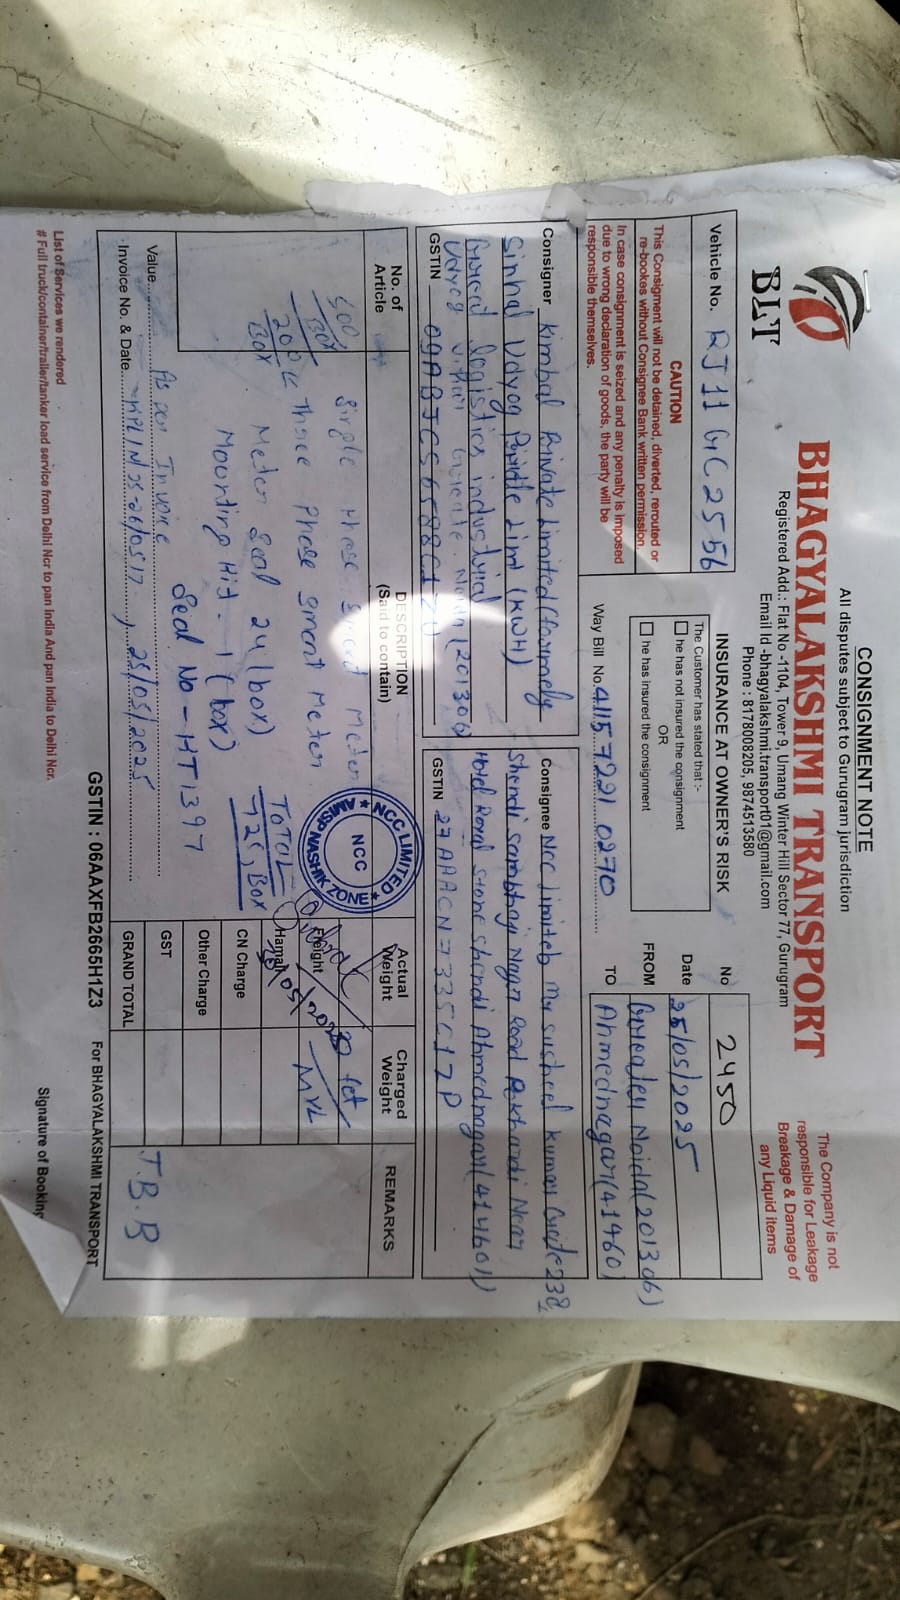 CONSIGNMENT NOTE
All disputes subject to Gurugram jurisdiction
BLT
BHAGYALAKSHMI TRANSPORT
Registered Add.: Flat No -1104, Tower 9, Umang Winter Hill Sector 77, Gurugram
Email Id -bhagyalakshmi.transport01@gmail.com
Phone : 8178008205, 9874513580
The Company is not
responsible for Leakage
Breakage & Damage of
any Liquid Items
Vehicle No. RJ11 GC 2556
CAUTION
This Consignment will not be detained, diverted, rerouted or
re-bookes without Consignee Bank written permission
In case consignment is seized and any penalty is imposed
due to wrong declaration of goods, the party will be
responsible themselves.
INSURANCE AT OWNER'S RISK
The Customer has stated that :-
he has not insured the consignment
OR
he has insured the consignment
Way Bill No. 411572210270
No 2450
Date 25/05/2025
FROM Noida (201306)
TO Ahmednagar (41460
Consigner Kimbal Private Limited (formely
Sinhal Udyog Limi (KWH)
Logistics industrial
(201306)
GSTIN
Consignee NCC Limited Mr Susheel Kumar 238,
Shendi Sambhaji Nagar Road Pokhardi Near
Hotel Royal Stone Shendi Ahmednagar (414601)
GSTIN 27AAACN7335C1ZP
No. of
Article
DESCRIPTION
(Said to contain)
Actual
Weight
Charged
Weight
REMARKS
500 Box Single Phase Smart Meter
200 Box Three Phase Smart Meter
Meter Seal 24 (box)
Mounting Kit - 1 (box)
Seal No - HT1397
TOTAL
725, Box
NCC LIMITED
NCC
AMISP NASHIK ZONE
Freight
Hamali
CN Charge
Other Charge
GST
GRAND TOTAL
T.B.B
Value As per Invoice
Invoice No. & Date 25/05/2025
GSTIN : 06AAXFB2665H1Z3
For BHAGYALAKSHMI TRANSPORT
List of Services we rendered
# Full truck/container/trailer/tanker load service from Delhi Ncr to pan india And pan India to Delhi Ncr.
Signature of Booking